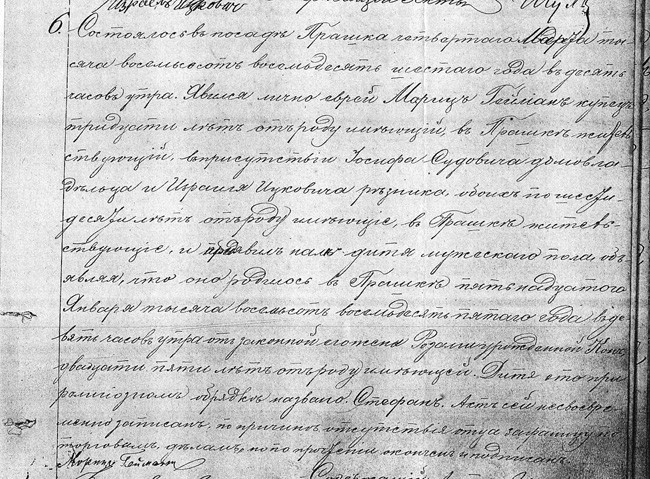 Израель Ицкович
6. Состоялось въ посадѣ Прашка четвертаго Марта ты-
сяча восемьсотъ восемьдесятъ шестаго года въ десять
часовъ утра. Явился лично еврей Морицъ Гейманъ купецъ
тридцати лѣтъ отъ роду имѣющій, въ Прашкѣ жительст-
ствующій, въ присутствіи Іосифа Судовича домовла-
дѣльца и Израиля Ицковича рѣзника, обоихъ по шести-
десяти лѣтъ отъ роду имѣющіе, въ Прашкѣ жительст-
ствующіе, и предъявилъ намъ дитя мужескаго пола, объ-
являя, что оно родилось въ Прашкѣ пятьнадцатого
Января тысяча восемьсотъ восемьдесятъ пятаго года въ де-
вять часовъ утра отъ законной его жены Розалии урожденной Конъ
двадцати пяти лѣтъ отъ роду имѣющей. Дитя это при
религіозномъ обрядѣ названо Стефанъ. Актъ сей несвоевре-
менно записанъ, по причинѣ отсутствія отца заграницу по
торговымъ дѣламъ, но по прочтеніи оконченъ и подписанъ.
Морицъ Гейманъ